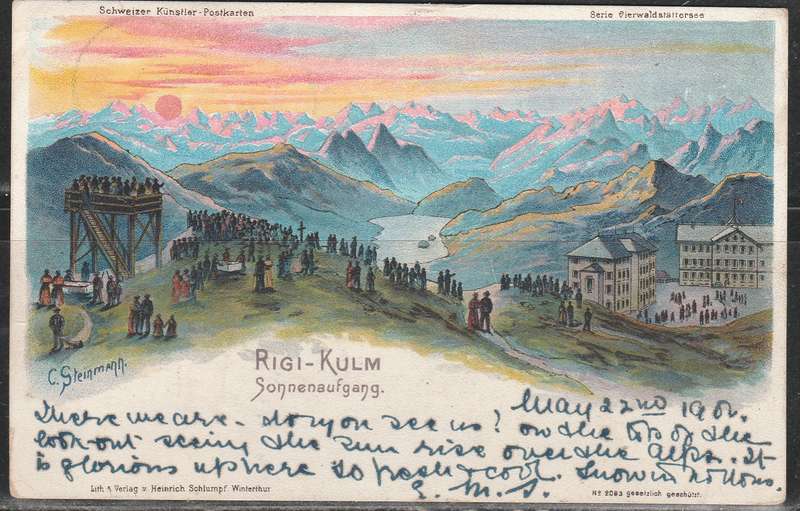 Schweizer Künstler-Postkarten
Serie Vierwaldstättersee
C. Steinmann.
RIGI-KULM
Sonnenaufgang.
May 22nd 190
There we are - do you see us? on the top of the
look-out seeing the sun rise over the Alps. It
is glorious up here so fresh & cool. Snow in hollows.
E. M. S.
Lith. & Verlag v. Heinrich Schlumpf. Winterthur
No 2083 gesetzlich geschützt.